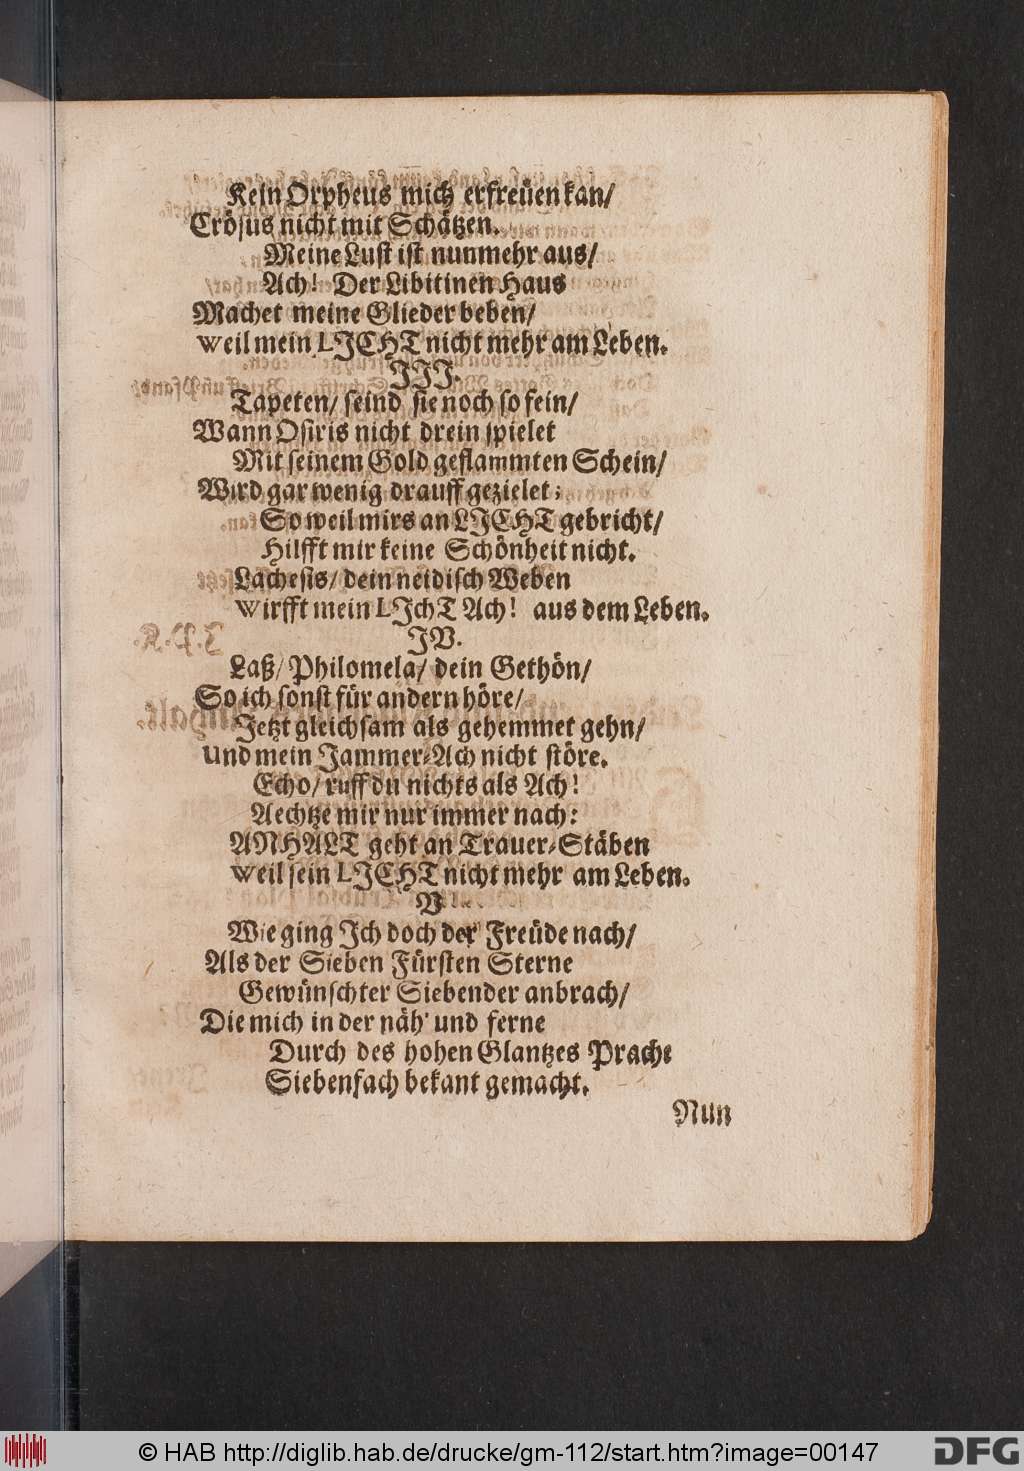 Kein Orpheus mich erfreüen kan/
Crösus nicht mit Schätzen.
Meine Lust ist nunmehr aus/
Ach! Der Libitinen Haus
Machet meine Glieder beben/
weil mein LJCHT nicht mehr am Leben.
JJJ.
Tapeten/ seind sie noch so fein/
Wann Osiris nicht drein spielet
Mit seinem Gold geflammten Schein/
Wird gar wenig drauff gezielet;
So weil mirs an LJCHT gebricht/
Hilfft mir keine Schönheit nicht.
Lachesis/ dein neidisch Weben
wirfft mein LJchT Ach! aus dem Leben.
JV.
Laß/ Philomela/ dein Gethön/
So ich sonst für andern höre/
Jetzt gleichsam als gehemmet gehn/
Und mein Jammer-Ach nicht störe.
Echo/ ruff du nichts als Ach!
Aechtze mir nur immer nach:
ANHALT geht an Trauer-Stäben
weil sein LJCHT nicht mehr am Leben.
V.
Wie ging Jch doch der Freüde nach/
Als der Sieben Fürsten Sterne
Gewünschter Siebender anbrach/
Die mich in der näh' und ferne
Durch des hohen Glantzes Pracht
Siebenfach bekant gemacht.
Nun
© HAB http://diglib.hab.de/drucke/gm-112/start.htm?image=00147
DFG